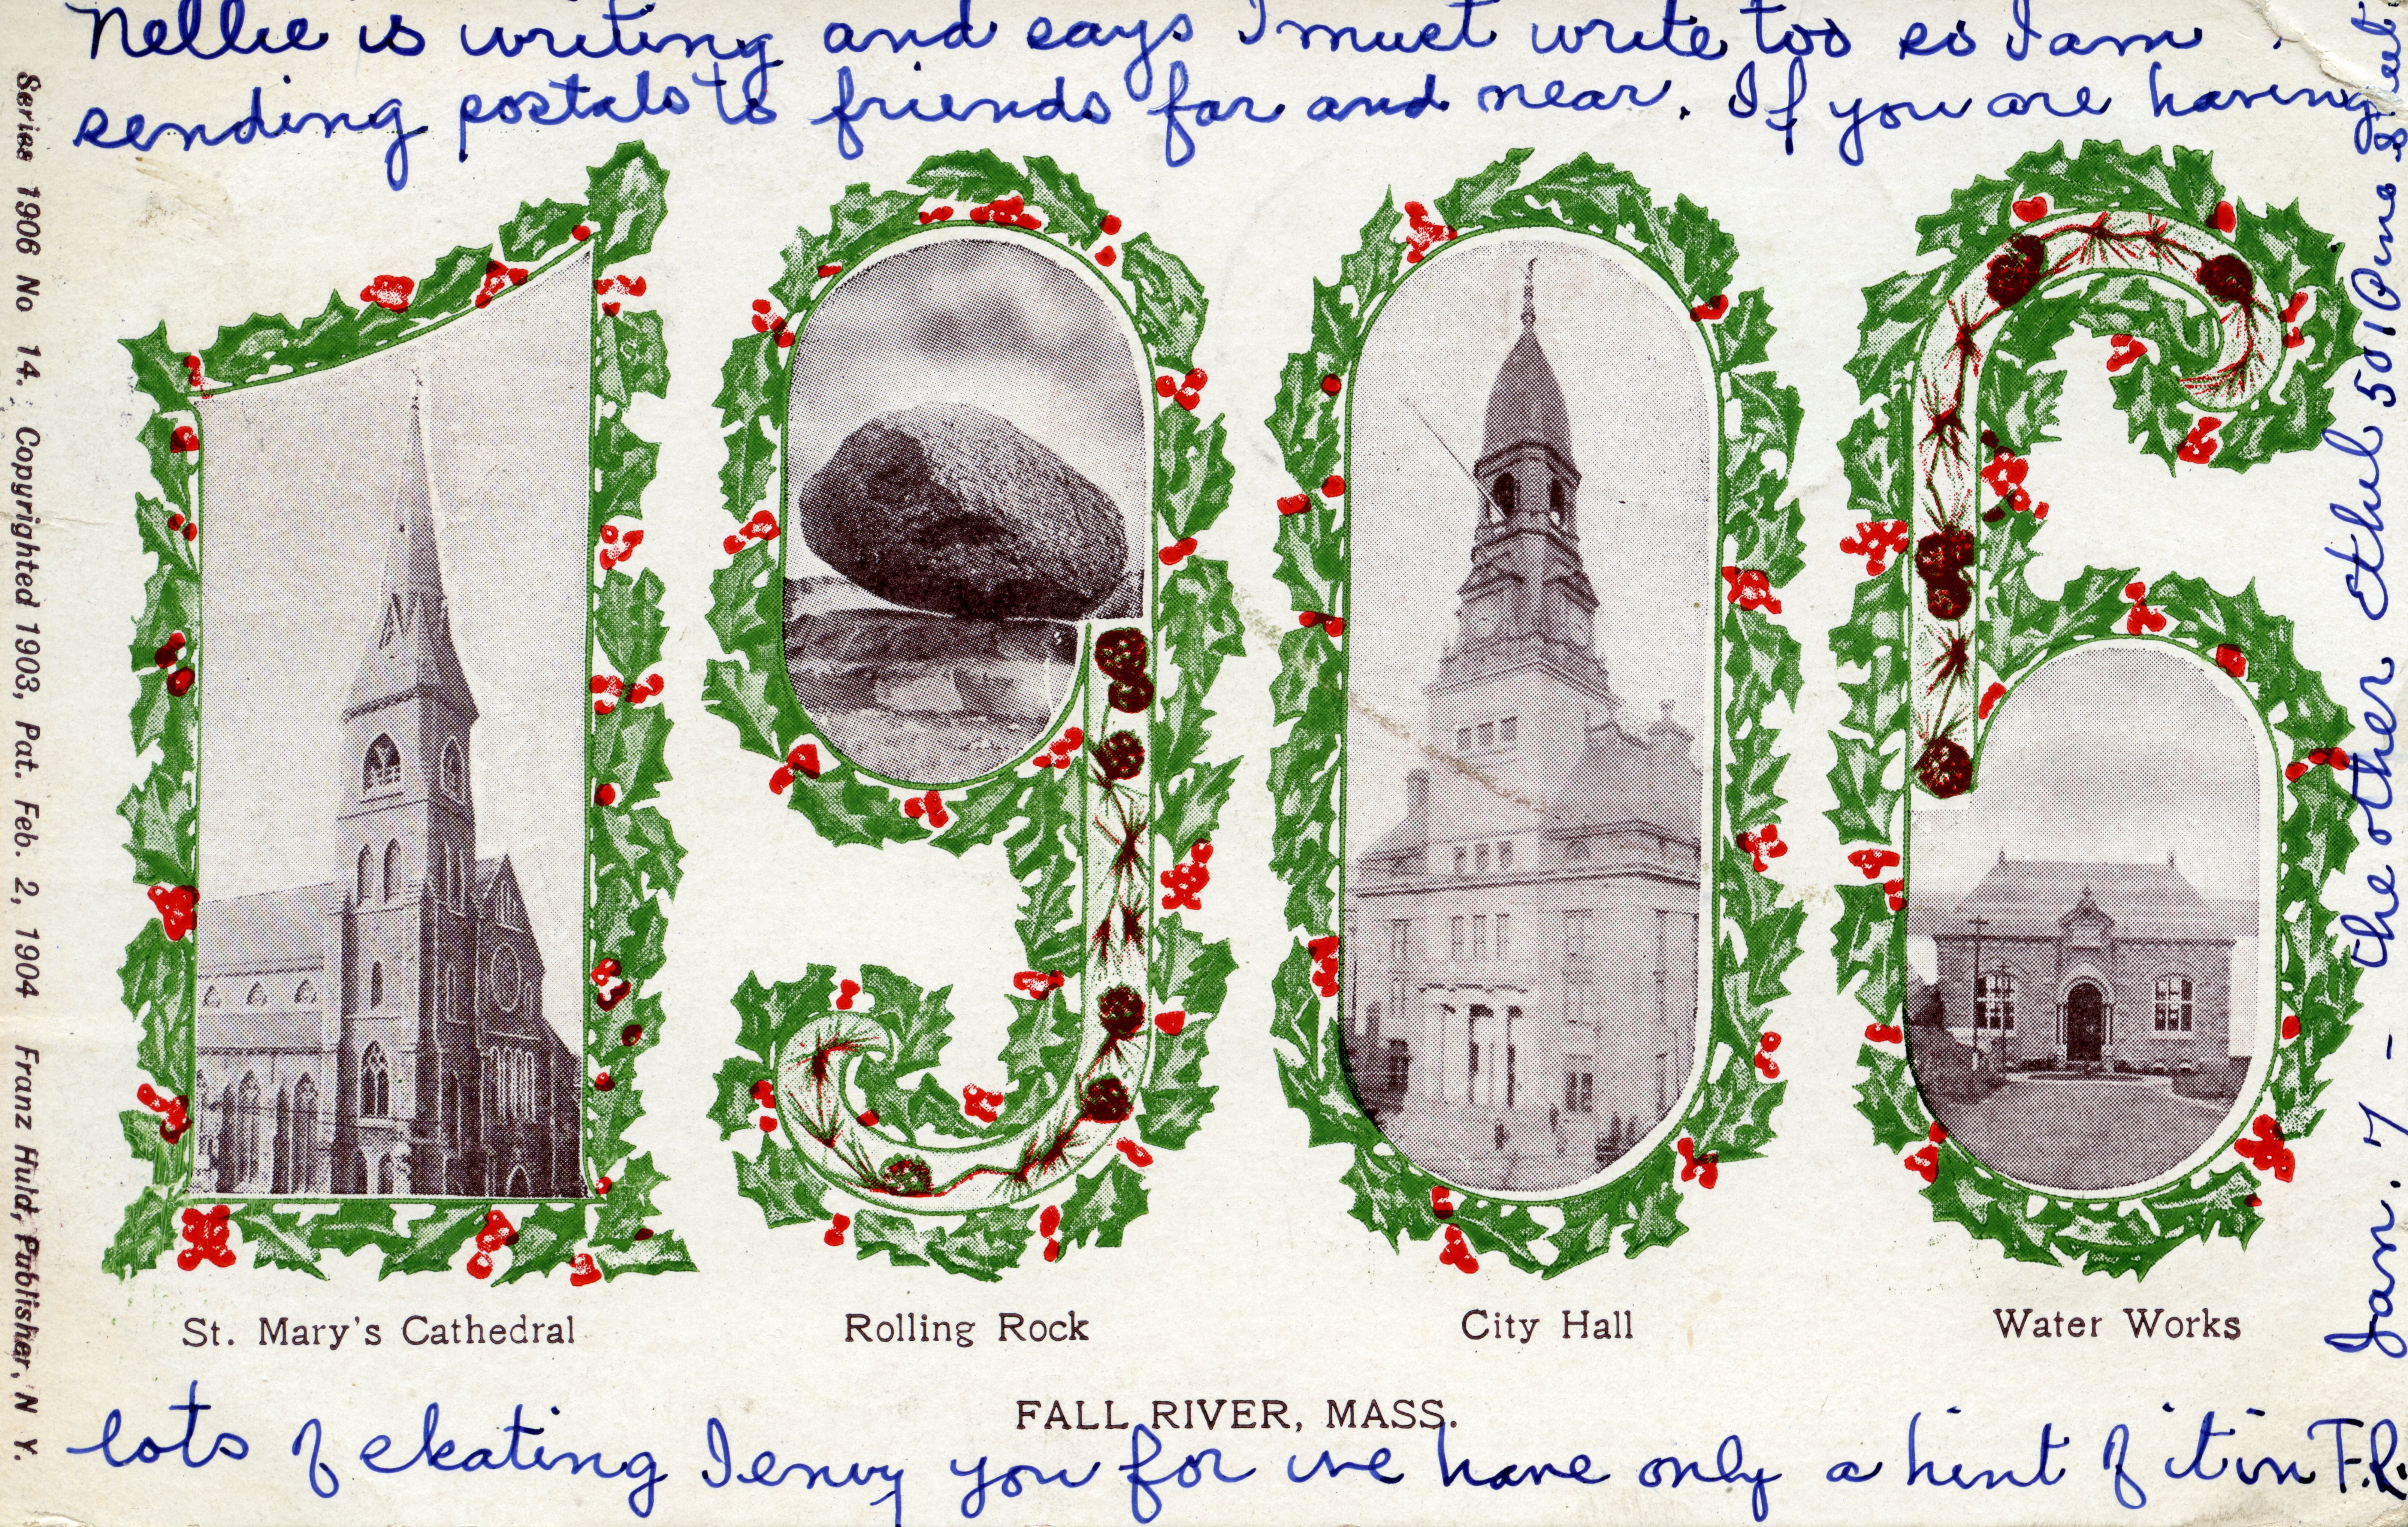 Nellie is writing and says I must write too so I am
sending postals to friends far and near. If you are having
Series 1906 No 14. Copyrighted 1903, Pat. Feb. 2, 1904 Franz Huld, Publisher, N Y.
St. Mary's Cathedral
Rolling Rock
City Hall
Water Works
FALL RIVER, MASS.
lots of skating I envy you for we have only a hint of it in F.R.
Jan. 7 - the other Ethel 501 Pine Street.